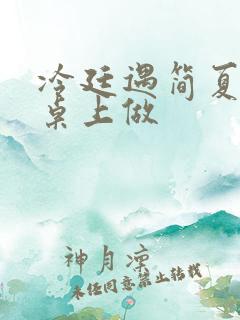 冷廷遇简夏
桌上做
神月凉
未经同意禁止转载